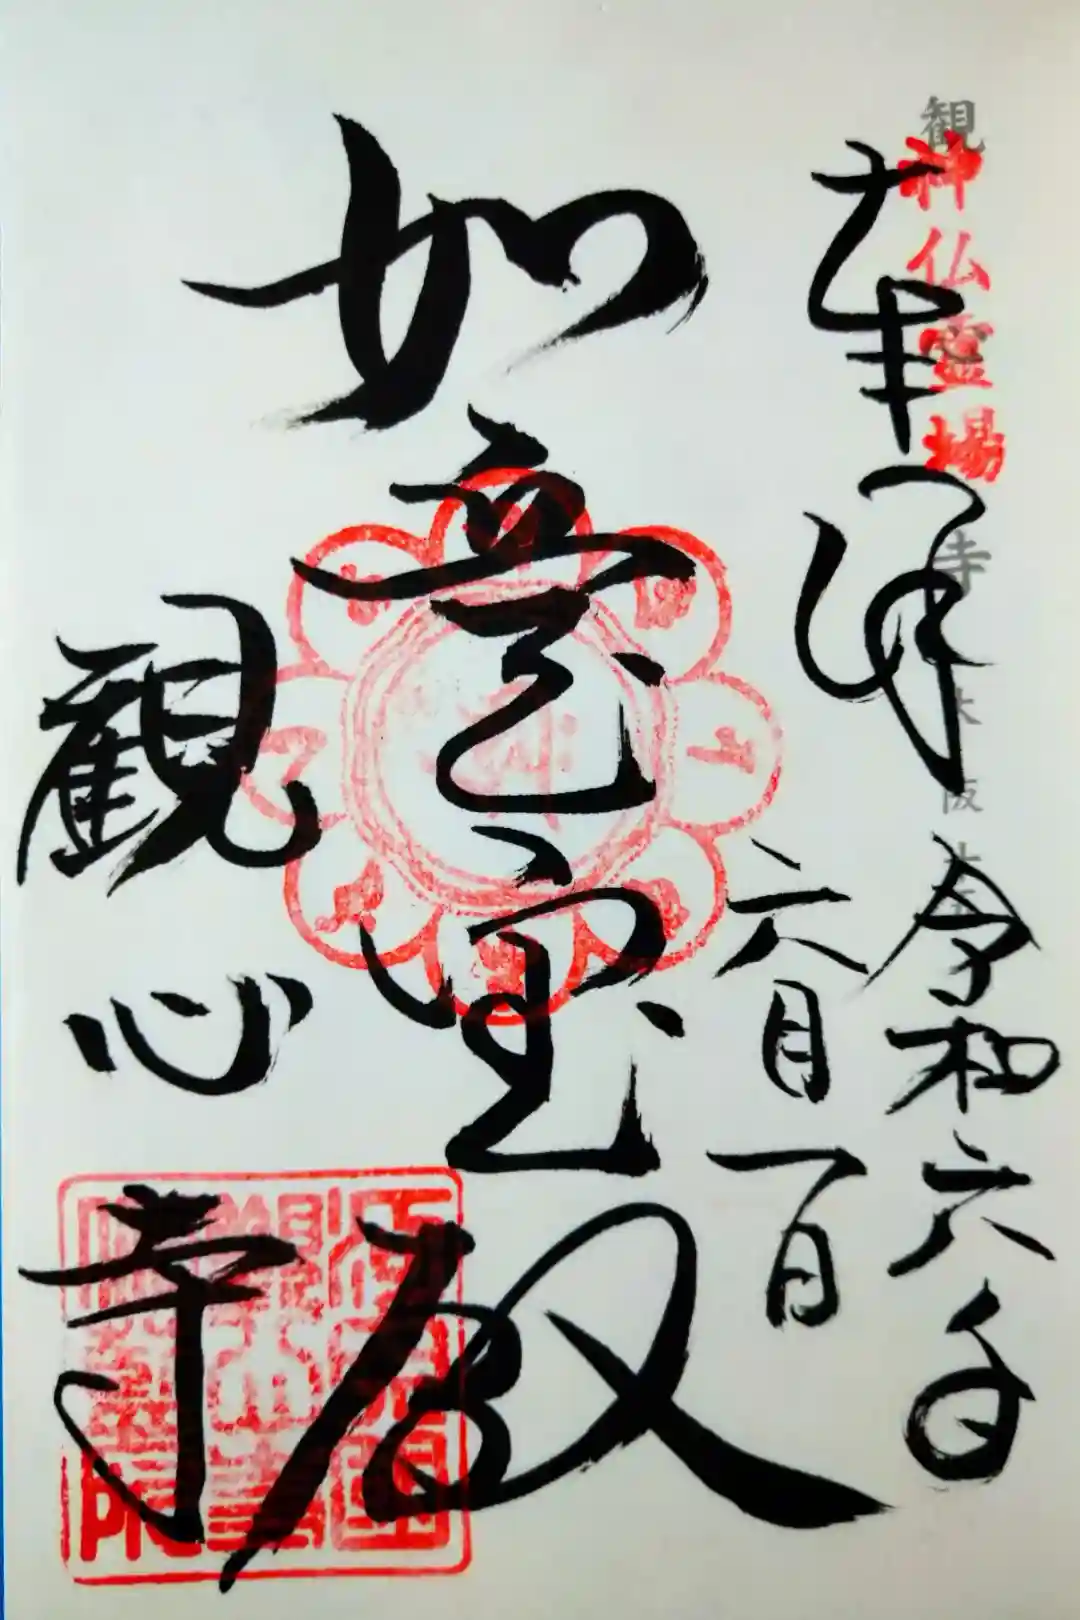 観心寺
神仏霊場
奉拝
令和六年
六月一日
如意宝殿
観心寺